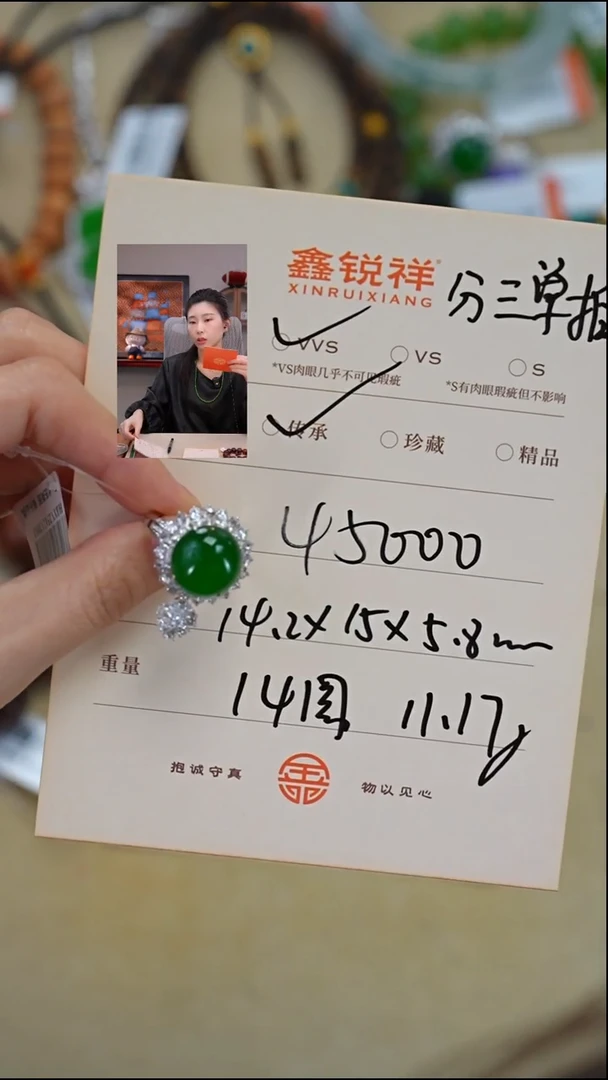 鑫锐祥
XINRUIXIANG
分三单拍
VVS VS S
*VS肉眼几乎不可见瑕疵 *S有肉眼瑕疵但不影响
传承 珍藏 精品
45000
14.2×15×5.8mm
重量 14圈 11.17g
抱诚守真 物以见心